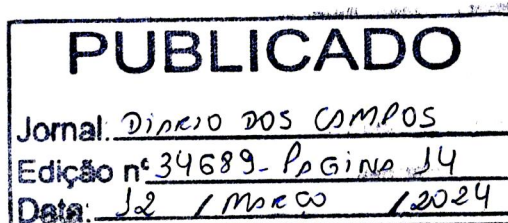 PUBLICADO
Jornal: DIARIO DOS CAMPOS
Edição nº 34689- PAGINA 14
Data: 12 / MARCO / 2024